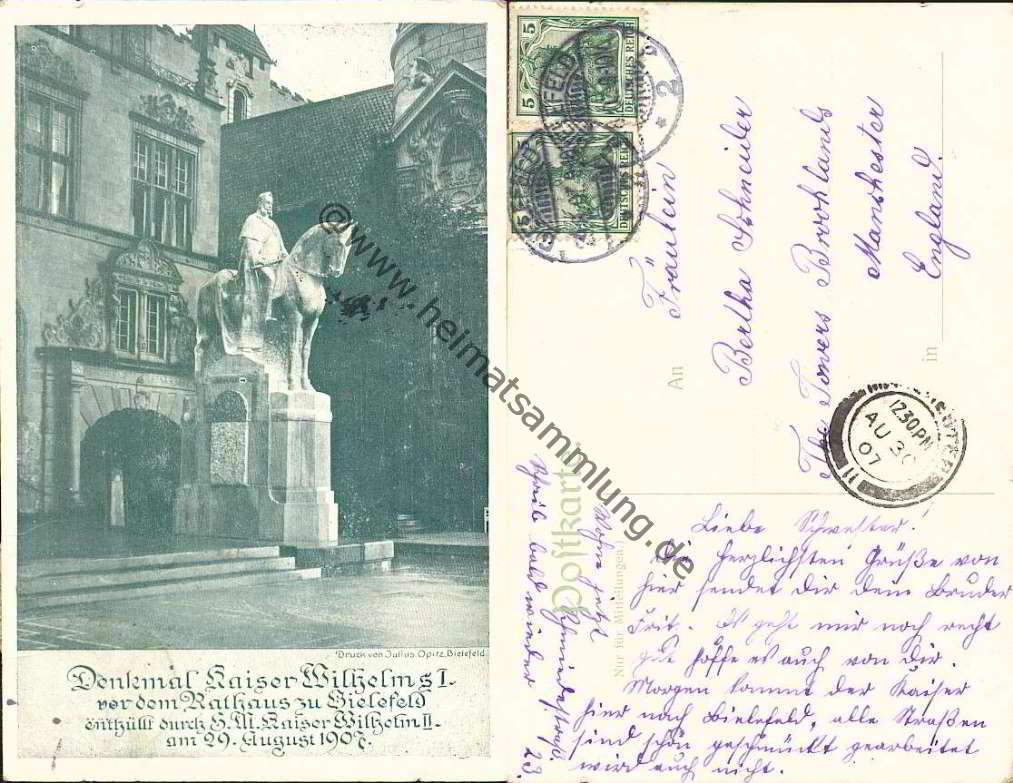 Druck von Julius Opitz, Bielefeld.
Denkmal Kaiser Wilhelms I.
vor dem Rathaus zu Bielefeld
enthüllt durch S. M. Kaiser Wilhelm II.
am 29. August 1907.
@www.heimatsammlung.de
5 5
DEUTSCHES REICH
5
DEUTSCHES REICH
BIELEFELD
* 2 *
BIELEFELD
Postkarte
Nur für Mitteilungen.
An
in
Fräulein
Bertha Schneider
The Towers Brooklands
Manchester
England.
MANCHESTER
12.30PM
AU 30
07
Liebe Schwester!
Die herzlichsten Grüße von
hier sendet Dir dein Bruder
Fritz. Es geht mir noch recht
gut hoffe es auch von Dir.
Morgen kommt der Kaiser
hier nach Bielefeld, alle Straßen
sind schön geschmückt gearbeitet
wird auch nicht.
Wohne jetzt Schmiedestraße 23.
Schreib bald wieder